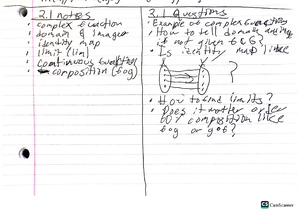 2.1 notes
complex function
domain & image
identity map
limit (lim)
continuous function
composition (fog)
2.1 Questions
Example of complex functions
How to tell domain and img
if not given G & G?
Is identity map like
?
How to find limits?
Does it matter order
for composition like
fog or gof?
CS CamScanner